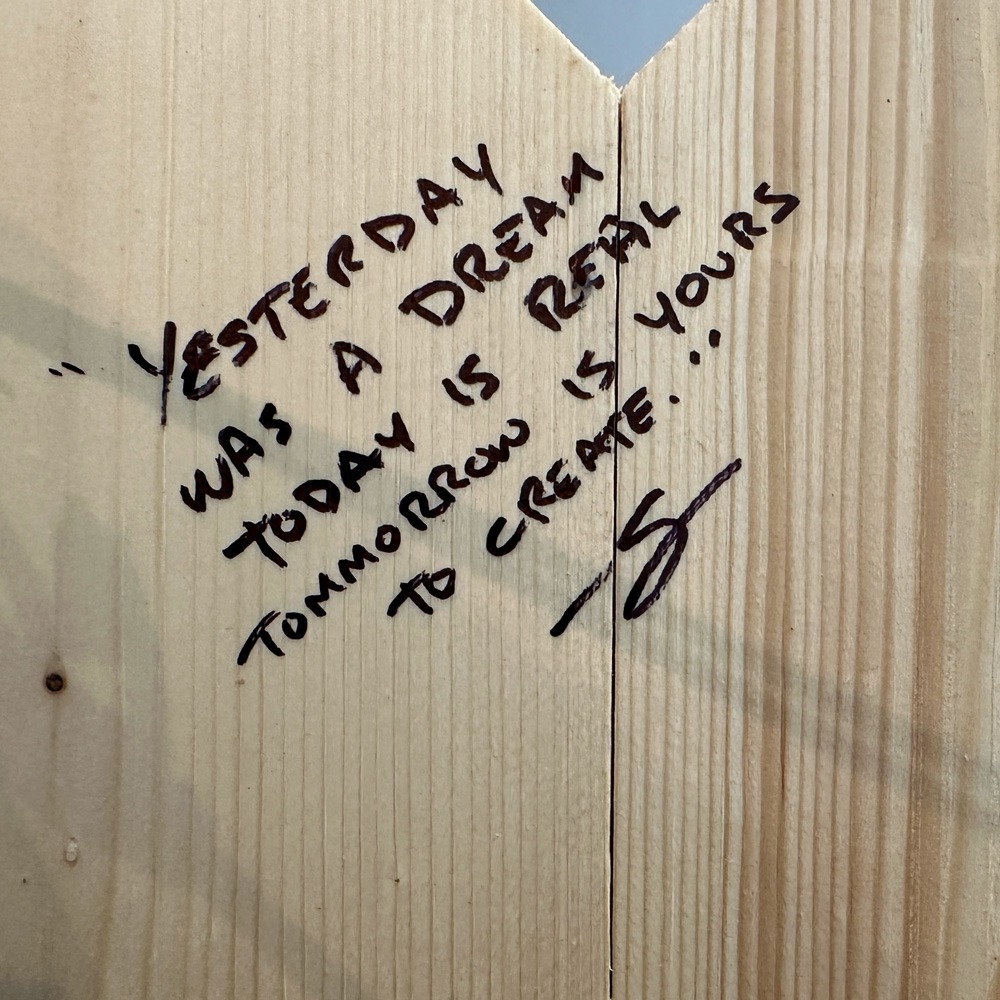 " YESTERDAY
WAS A DREAM
TODAY IS REAL
TOMMORROW IS YOURS
TO CREATE..."
-S